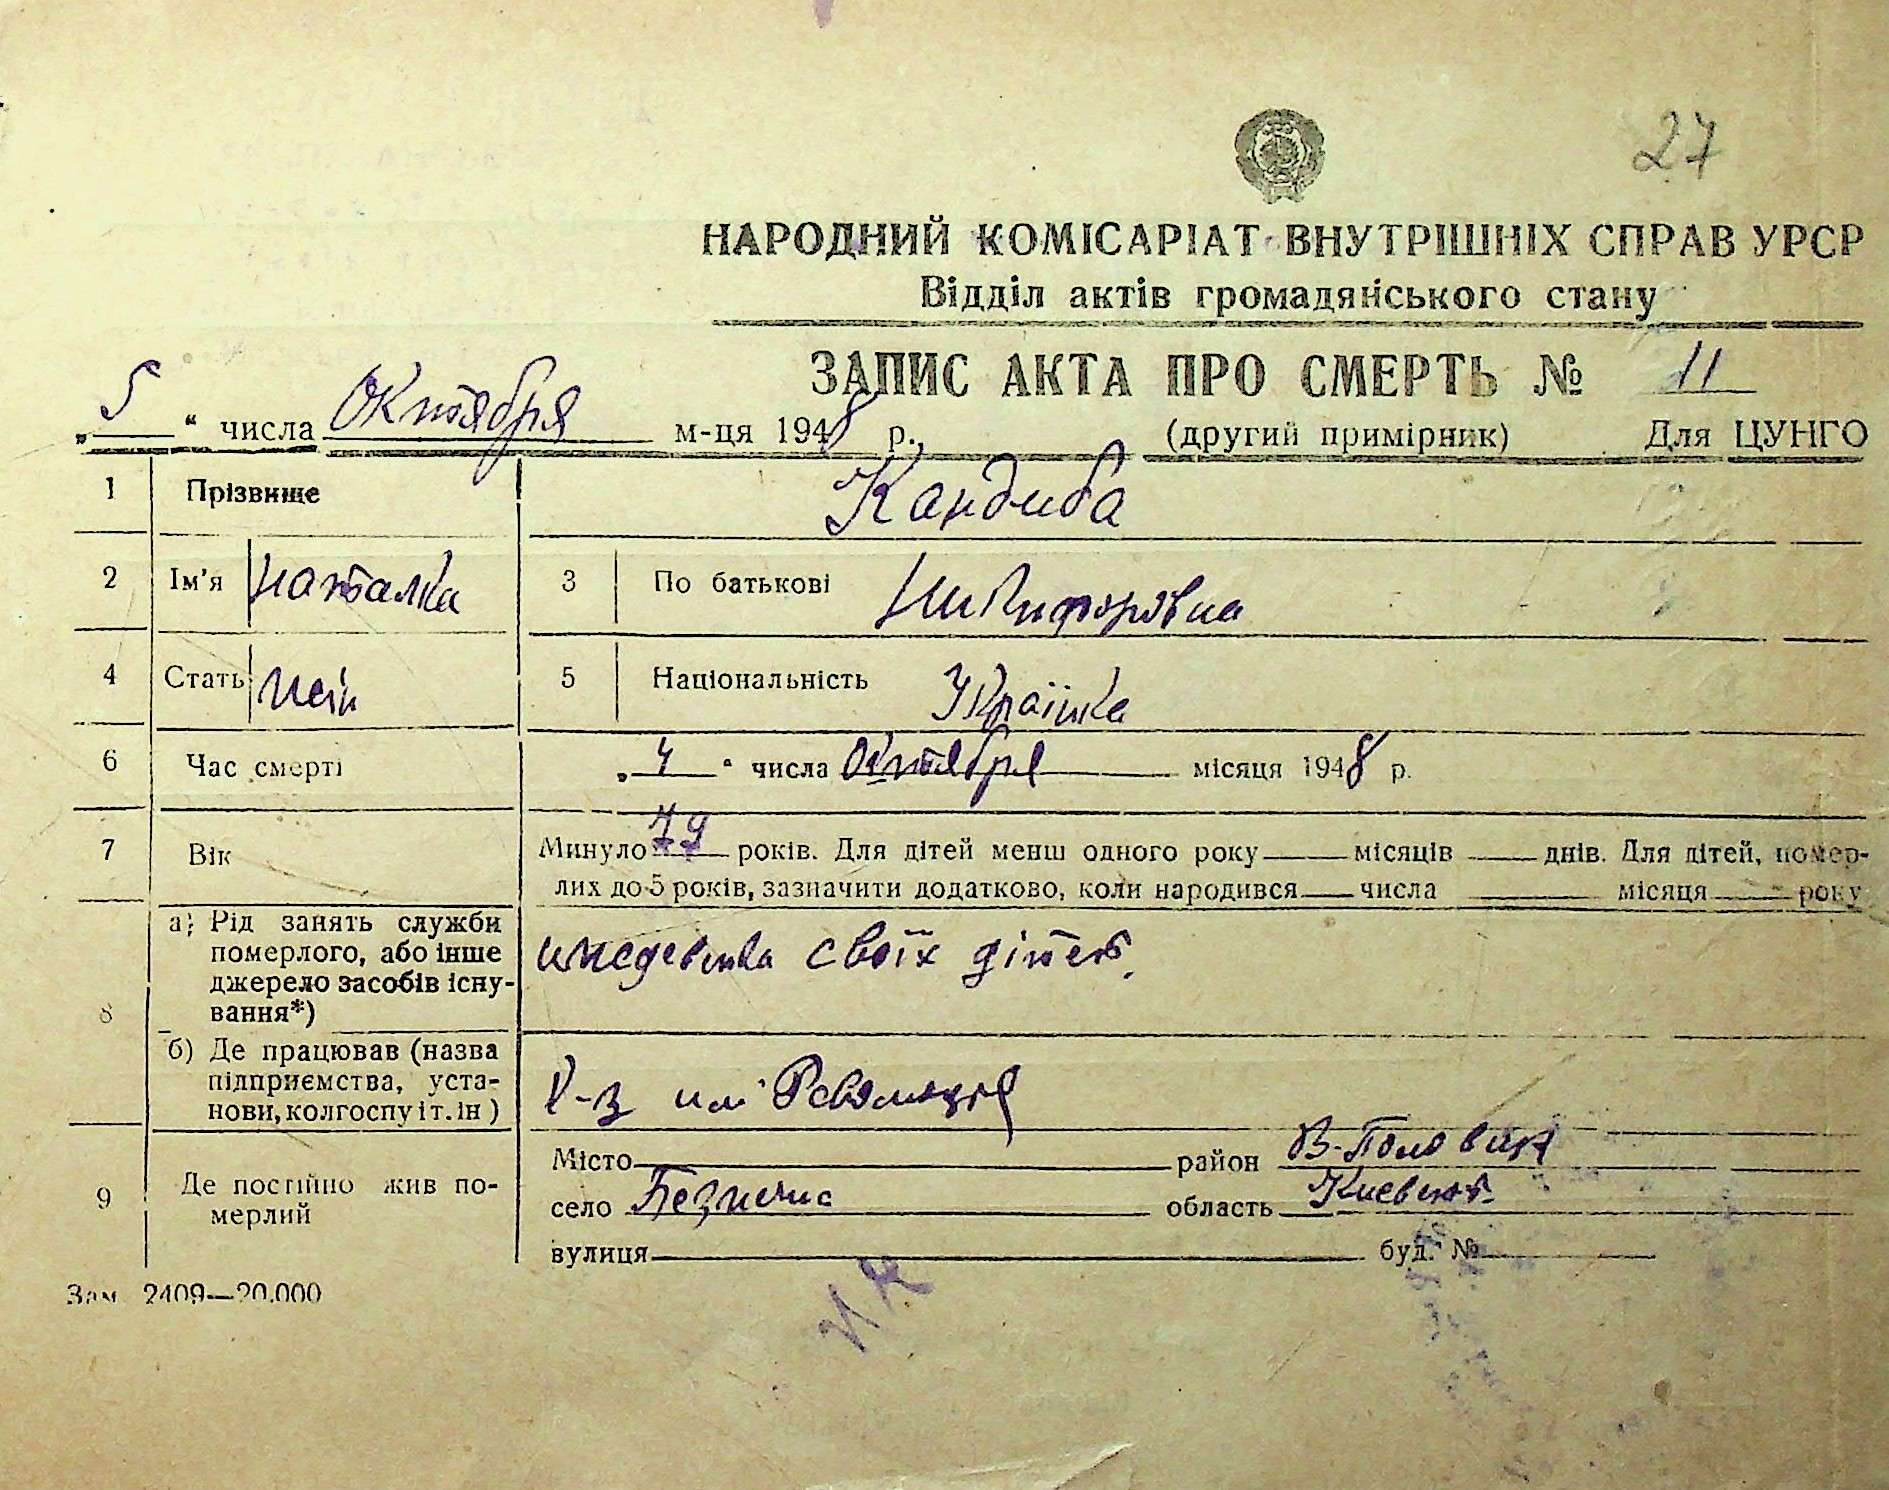 27
НАРОДНИЙ КОМІСАРІАТ ВНУТРІШНІХ СПРАВ УРСР
Відділ актів громадянського стану
ЗАПИС АКТА ПРО СМЕРТЬ № 11
„5“ числа Октября м-ця 1948 р. (другий примірник) Для ЦУНГО
1 Прізвище Кандиба
2 Ім'я Наталка 3 По батькові Никифоровна
4 Стать 5 Національність Українка
6 Час смерті „4“ числа Октября місяця 1948 р.
7 Вік Минуло 79 років. Для дітей менш одного року місяців днів. Для дітей, помер-
лих до 5 років, зазначити додатково, коли народився числа місяця року
8 а) Рід занять служби
померлого, або інше
джерело засобів існу-
вання*)
своїх дітей
б) Де працював (назва
підприємства, уста-
нови, колгоспу і т. ін)
К-з им Революція
9 Де постійно жив по-
мерлий
Місто район В-Половец
село Безпечна область Киевськ
вулиця буд. №
Зам. 2409—20.000